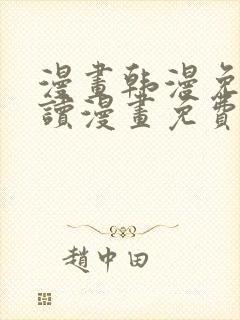 漫畫韩漫免
讀漫畫免費
趙中田